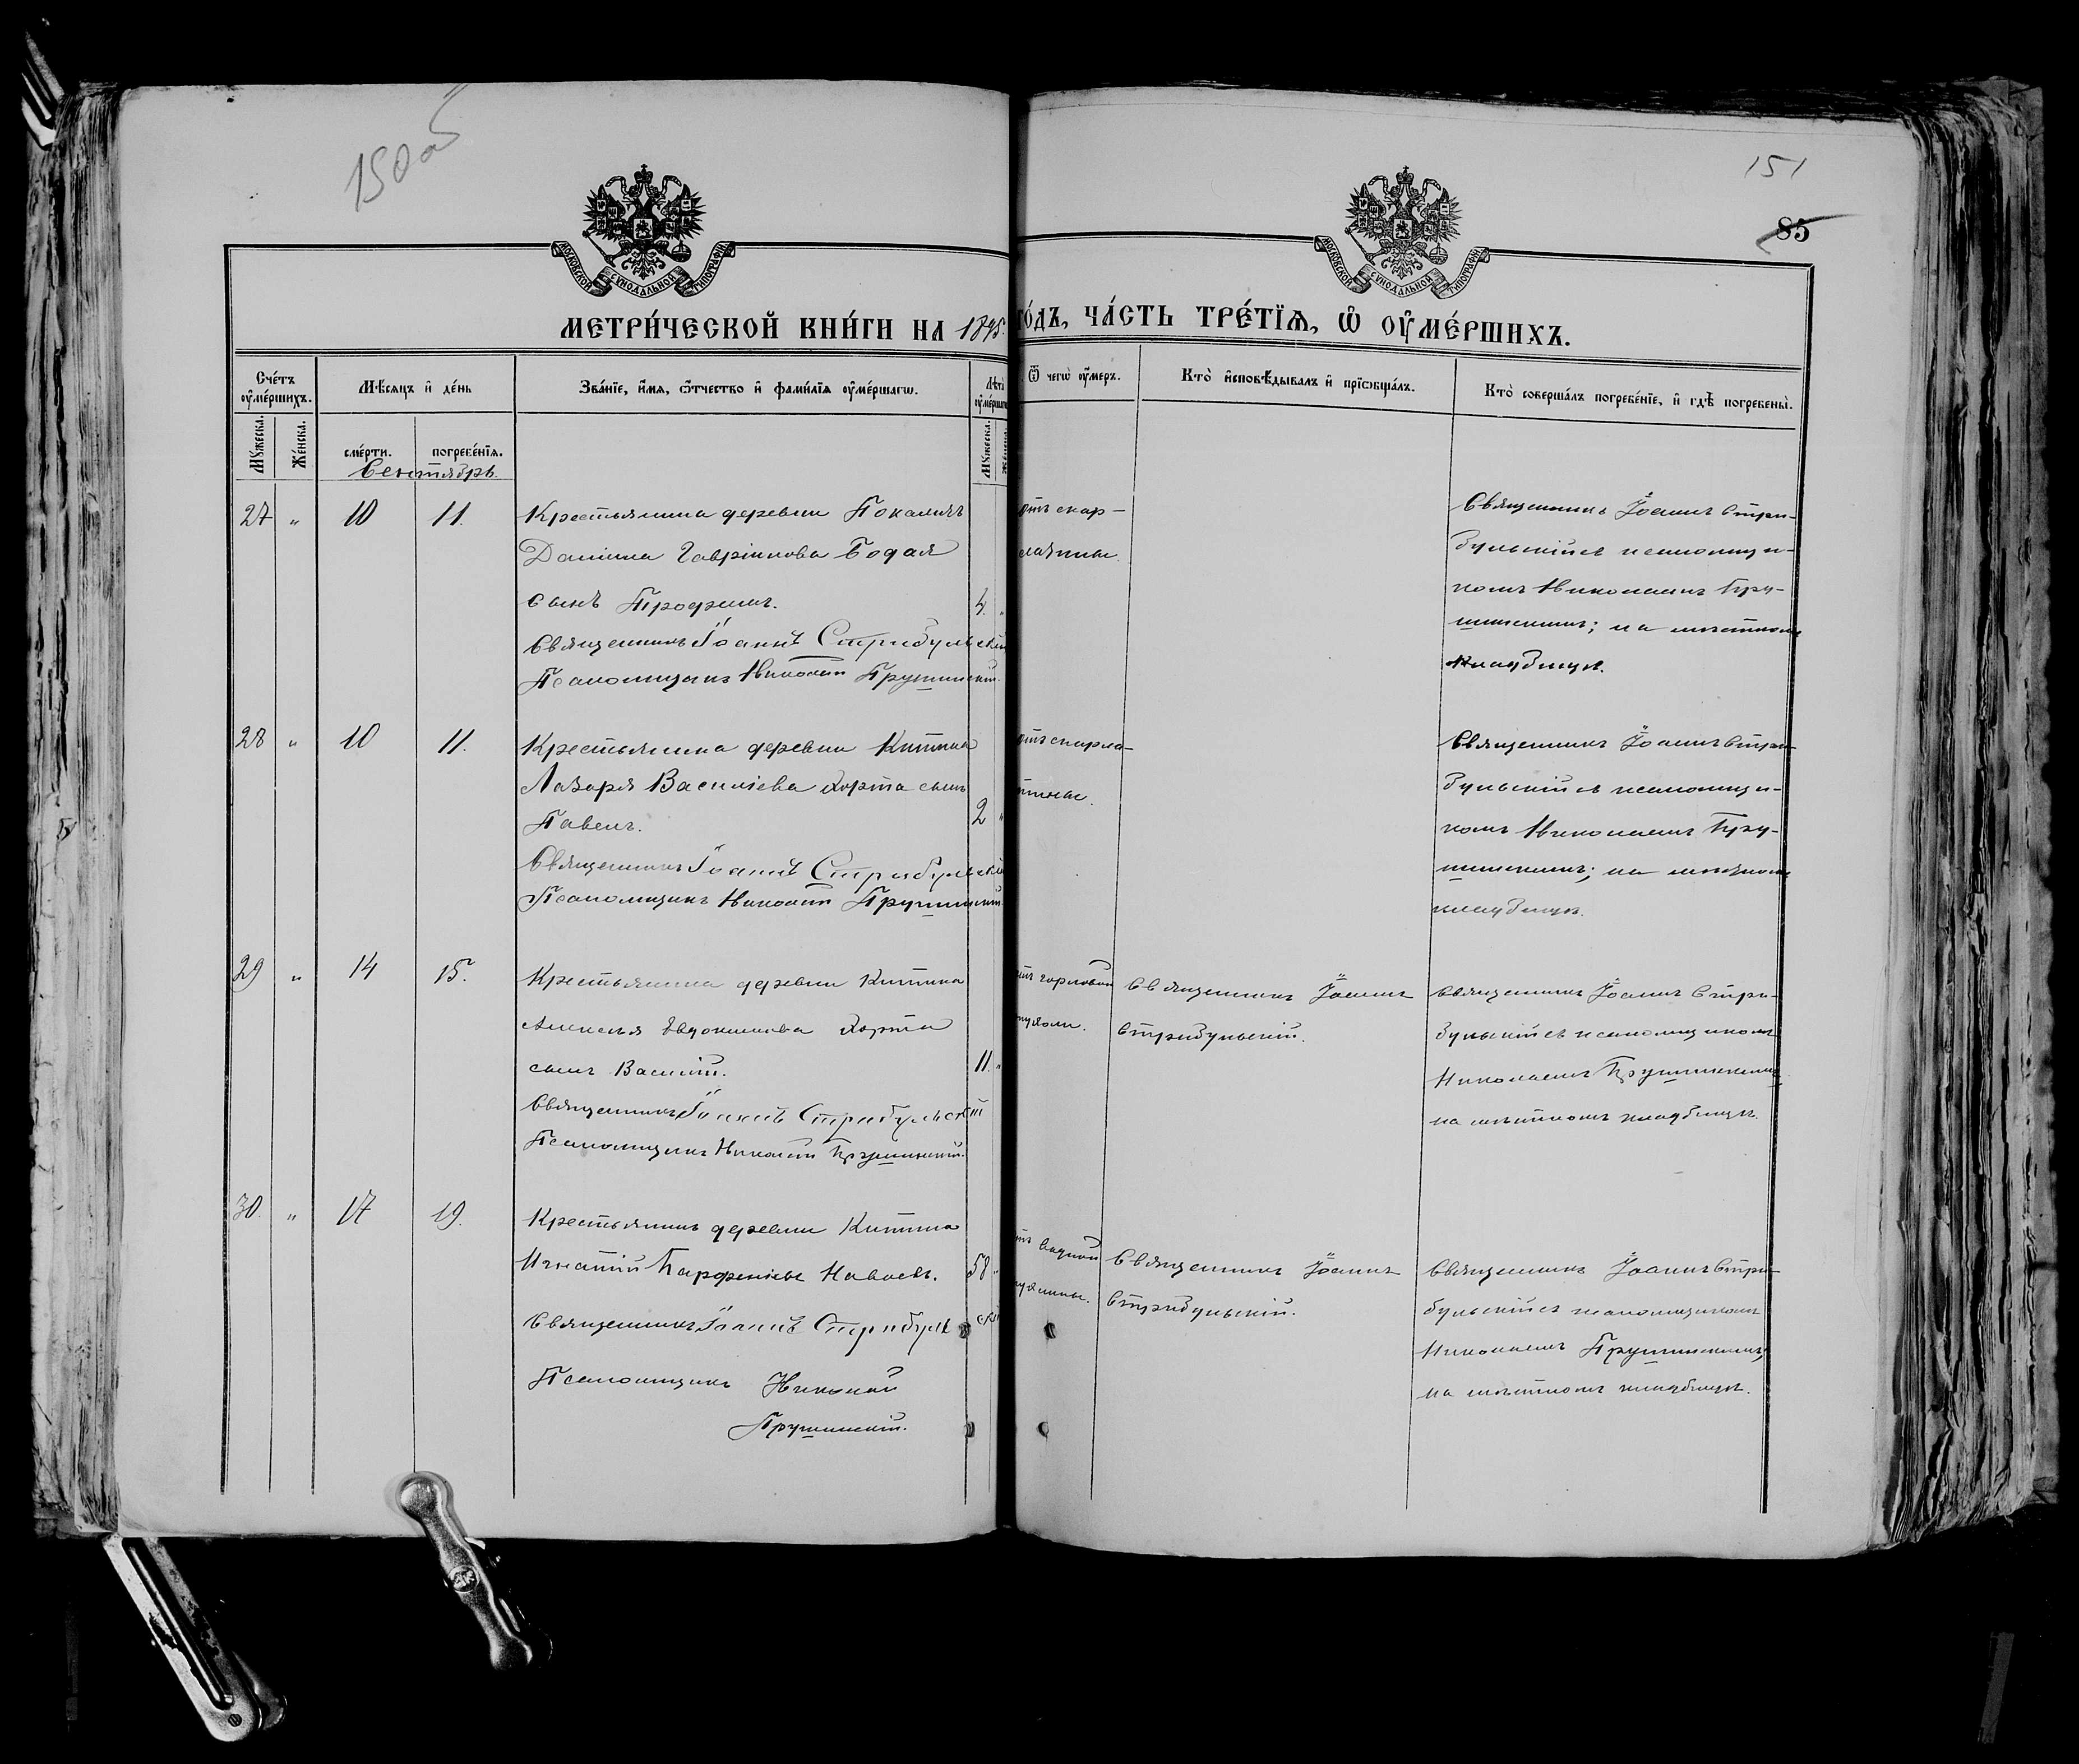 150 об
151
85
МОСКОВСКОЙ СѴНОДАЛЬНОЙ ТИПОГРАФІИ
МОСКОВСКОЙ СѴНОДАЛЬНОЙ ТИПОГРАФІИ
МЕТРИ́ЧЕСКОЙ КНИ́ГИ НА 1895.
ГО́ДЪ, ЧА́СТЬ ТРЕ́ТЇѦ, Ѽ ОУ҆МЕ́РШИХЪ.
Сче́тъ оу҆ме́ршихъ.
Мѣ́сяцъ и҆ де́нь
Зва́нїе, и҆́мя, ѻ҆́тчество и҆ фами́лїя оу҆ме́ршагѡ.
Лѣ́та оу҆ме́ршагѡ
Ѿ чегѡ̀ оу҆́меръ.
Кто̀ и҆сповѣ́дывалъ и҆ прїѡбща́лъ.
Кто̀ соверша́лъ погребе́нїе, и҆ гдѣ̀ погребены̀.
Мꙋ́жеска.
Же́нска.
сме́рти.
погребе́нїя.
Мꙋ́жеска.
Сентябрь.
27 " 10 11. Крестьянина деревни
Даніила Гавріилова Бодая
сынъ Трофимъ. 4. "
Священникъ Іоаннъ Стрибульскій
Псаломщикъ Николай Прушинскій.
отъ скар-
латины.
Священникъ Іоаннъ Стри-
бульскій съ псаломщи-
комъ Николаемъ Пру-
шинскимъ; на мѣстномъ
кладбищѣ.
28 " 10 11. Крестьянина деревни Китина
Лазаря Василіева Хорта сынъ
Павелъ. 2 "
Священникъ Іоаннъ Стрибульскій
Псаломщикъ Николай Прушинскій.
отъ скарла-
тины.
Священникъ Іоаннъ Стри-
бульскій съ псаломщи-
комъ Николаемъ Пру-
шинскимъ; на мѣстномъ
кладбищѣ.
29 " 14 15. Крестьянина деревни Китина
Алексѣя Евдокимова Хорта
сынъ Василій. 11. "
Священникъ Іоаннъ Стрибульскій
Псаломщикъ Николай Прушинскій.
отъ горловой
опухоли.
Священникъ Іоаннъ
Стрибульскій.
Священникъ Іоаннъ Стри-
бульскій съ псаломщикомъ
Николаемъ Прушинскимъ
на мѣстномъ кладбищѣ.
30. " 17 19. Крестьянинъ деревни Китина
Игнатій Парфеніевъ 58 "
Священникъ Іоаннъ Стрибульскій
Псаломщикъ Николай
Прушинскій.
отъ водной
Священникъ Іоаннъ
Стрибульскій.
Священникъ Іоаннъ Стри-
бульскій съ псаломщикомъ
Николаемъ Прушинскимъ,
на мѣстномъ кладбищѣ.